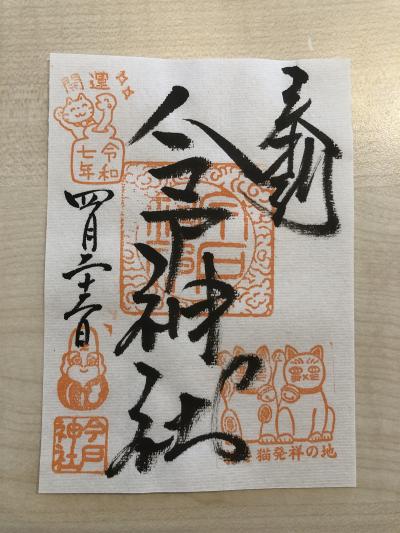 奉拝
今戸神社
開運
令和
七年
四月二十三日
今戸
神社
猫発祥の地